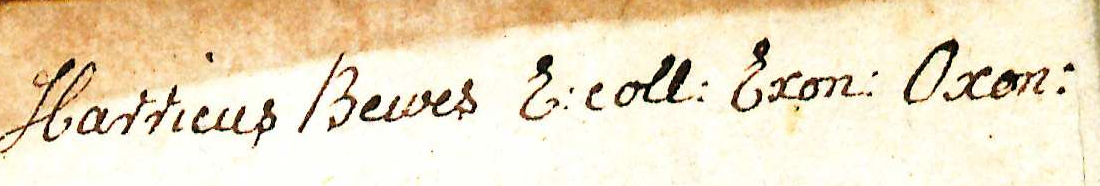 Harricus Bewes E: coll: Exon: Oxon: